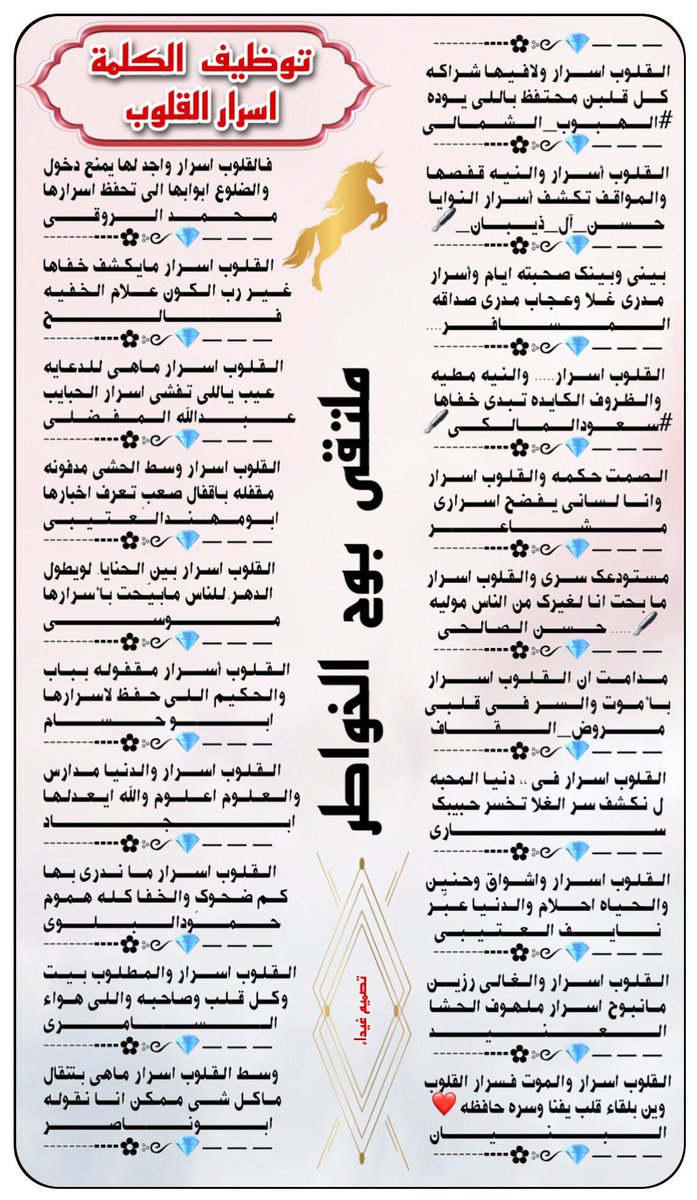 توظيف الكلمة
اسرار القلوب
القلوب اسرار ولافيها شراكه
كل قلبن محتفظ باللى يوده
#الهبوب_الشمالى
القلوب أسرار والنيه قفصها
والمواقف تكشف أسرار النوايا
حسن_آل_ذيبان_
بينى وبينك صحبته ايام وأسرار
مدرى غلا وعجاب مدرى صداقه
المسافر...
القلوب اسرار.... والنيه مطيه
والظروف الكايده تبدى خفاها
#سعودالمالكى
الصمت حكمه والقلوب اسرار
وانا لسانى يفضح اسرارى
مشاعر
مستودعك سرى والقلوب اسرار
ما بحت انا لغيرك من الناس موليه
..... حسن الصالحى
مدامت ان القلوب اسرار
بأموت والسر فى قلبى
مروض_القاف
القلوب اسرار فى ،، دنيا المحبه
ل نكشف سر الغلا تخسر حبيبك
سارى
القلوب اسرار واشواق وحنين
والحياه احلام والدنيا عبر
نايف العتيبى
القلوب اسرار والغالى رزين
مانبوح اسرار ملهوف الحشا
العنيد
القلوب اسرار والموت فسرار القلوب
وين بلقاء قلب يفنا وسره حافظه ❤️
البنيان
فالقلوب اسرار واجد لها يمنع دخول
والضلوع ابوابها الى تحفظ اسرارها
محمد الروقى
القلوب اسرار مايكشف خفاها
غير رب الكون علام الخفيه
فالح
القلوب اسرار ماهى للدعايه
عيب ياللى تفشى اسرار الحبايب
عبدالله المفضلى
القلوب اسرار وسط الحشى مدفونه
مقفله باقفال صعب تعرف اخبارها
ابومهندالعتيبى
القلوب اسرار بين الحنايا. لويطول
الدهر. للناس مابيحت بأسرارها
موسى
القلوب أسرار مقفوله بباب
والحكيم اللى حفظ لاسرارها
ابو حسام
القلوب اسرار والدنيا مدارس
والعلوم اعلوم والله ايعدلها
ابجاد
القلوب اسرار ما ندرى بها
كم ضحوك والخفا كله هموم
حمودالبلوى
القلوب اسرار والمطلوب بيت
وكل قلب وصاحبه واللى هواء
السامرى
وسط القلوب اسرار ماهى بتنقال
ماكل شى ممكن انا نقوله
ابوناصر
ملتقى بوح الخواطر
تصميم غيداء